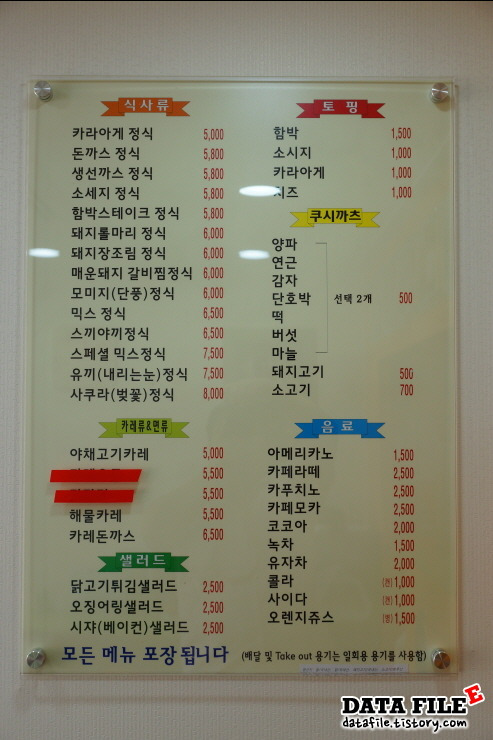 식사류
카라아게 정식 5,000
돈까스 정식 5,800
생선까스 정식 5,800
소세지 정식 5,800
함박스테이크 정식 5,800
돼지롤마리 정식 6,000
돼지장조림 정식 6,000
매운돼지 갈비찜정식 6,000
모미지(단풍)정식 6,000
믹스 정식 6,500
스끼야끼정식 6,500
스페셜 믹스정식 7,500
유끼(내리는눈)정식 7,500
사쿠라(벚꽃)정식 8,000
카레류&면류
야채고기카레 5,000
5,500
5,500
해물카레 5,500
카레돈까스 6,500
샐러드
닭고기튀김샐러드 2,500
오징어링샐러드 2,500
시쟈(베이컨)샐러드 2,500
토핑
함박 1,500
소시지 1,000
카라아게 1,000
치즈 1,000
쿠시까츠
양파
연근
감자
단호박 선택 2개 500
떡
버섯
마늘
돼지고기 500
소고기 700
음료
아메리카노 1,500
카페라떼 2,500
카푸치노 2,500
카페모카 2,500
코코아 2,000
녹차 1,500
유자차 2,000
콜라 (캔)1,000
사이다 (캔)1,000
오렌지쥬스 (병)1,500
모든 메뉴 포장됩니다 (배달 및 Take out 용기는 일회용 용기를 사용함)
DATA FILE E
datafile.tistory.com